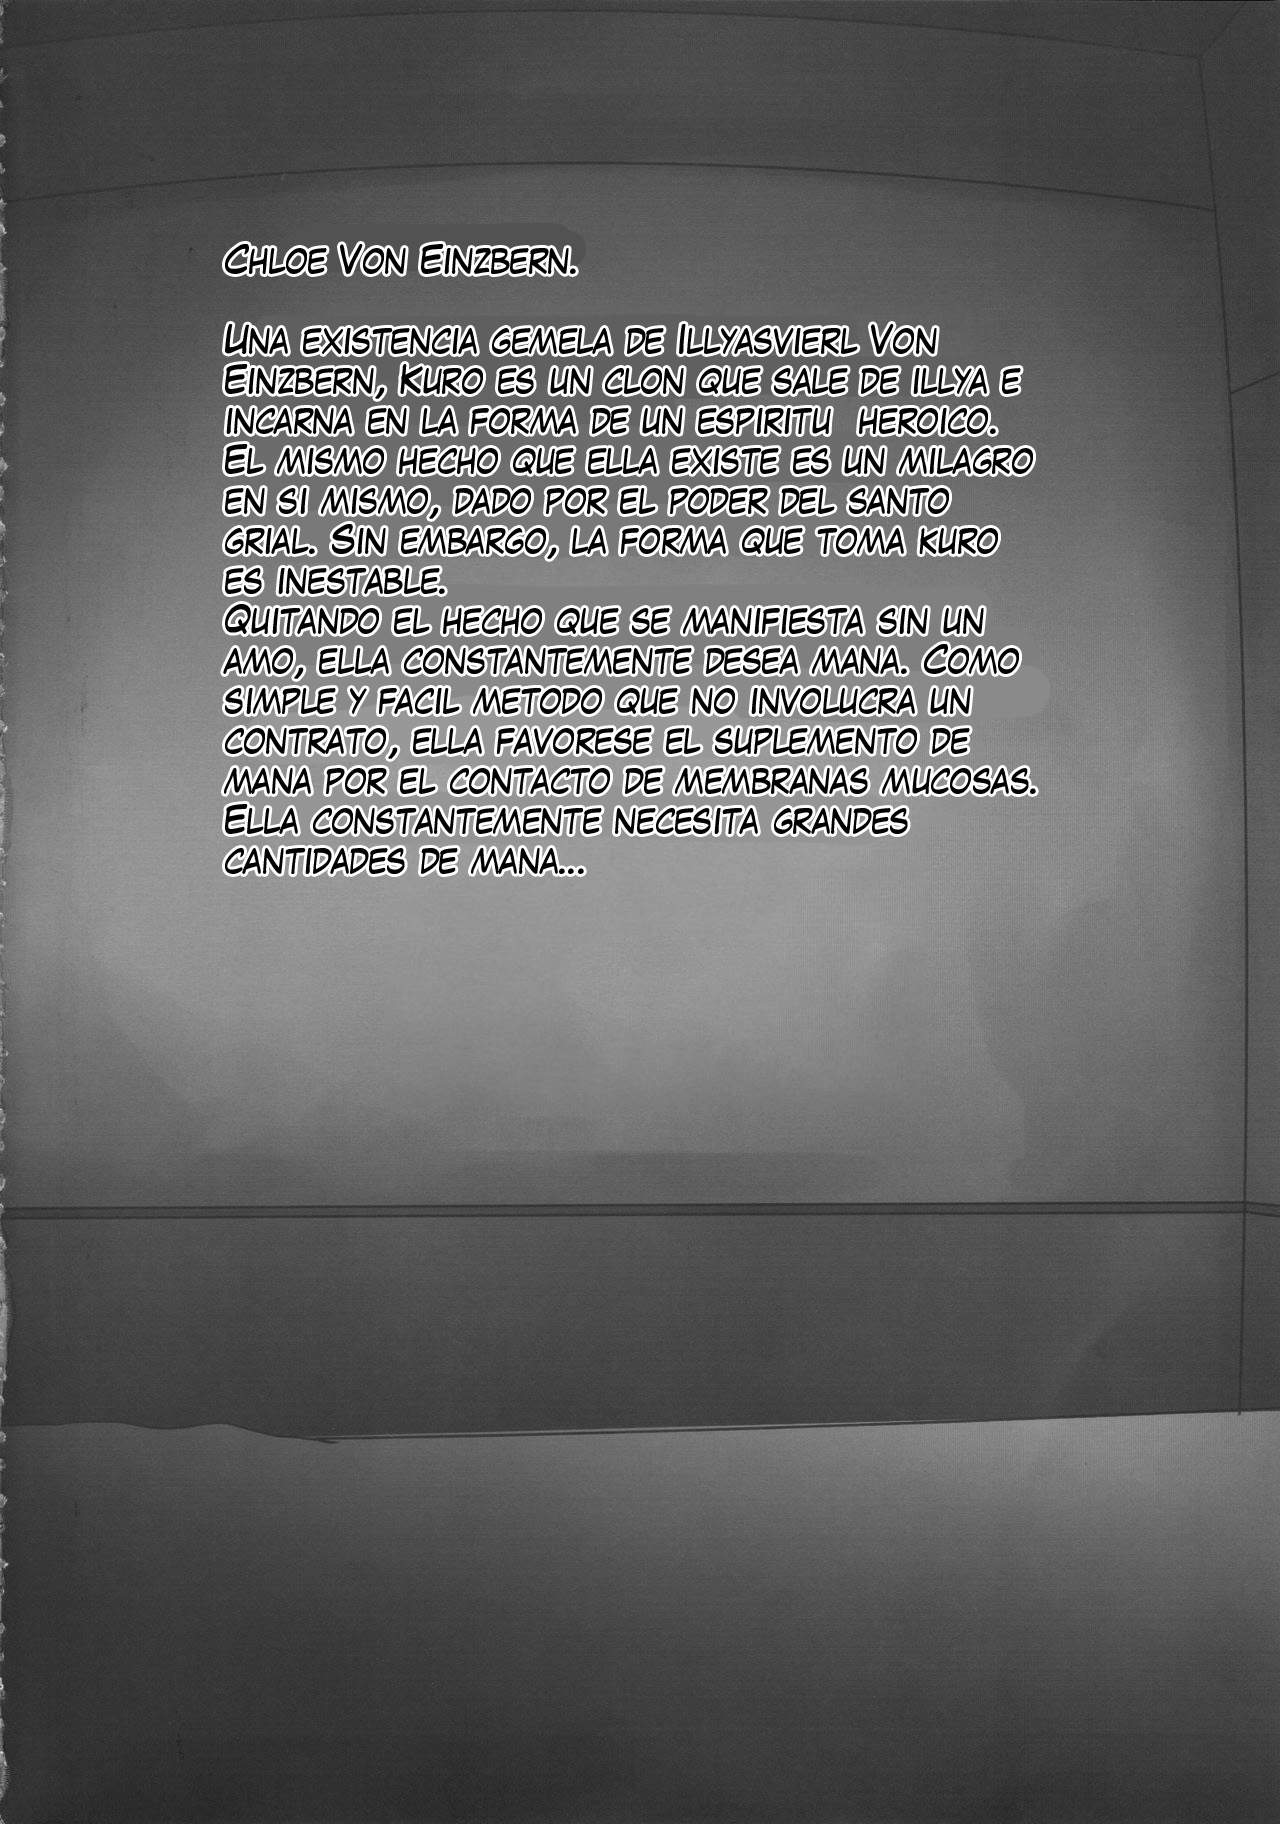 Chloe Von Einzbern.
Una existencia gemela de Illyasvierl Von
Einzbern, Kuro es un clon que sale de illya e
incarna en la forma de un espiritu heroico.
El mismo hecho que ella existe es un milagro
en si mismo, dado por el poder del santo
grial. Sin embargo, la forma que toma kuro
es inestable.
Quitando el hecho que se manifiesta sin un
amo, ella constantemente desea mana. Como
simple y facil metodo que no involucra un
contrato, ella favorese el suplemento de
mana por el contacto de membranas mucosas.
Ella constantemente necesita grandes
cantidades de mana...